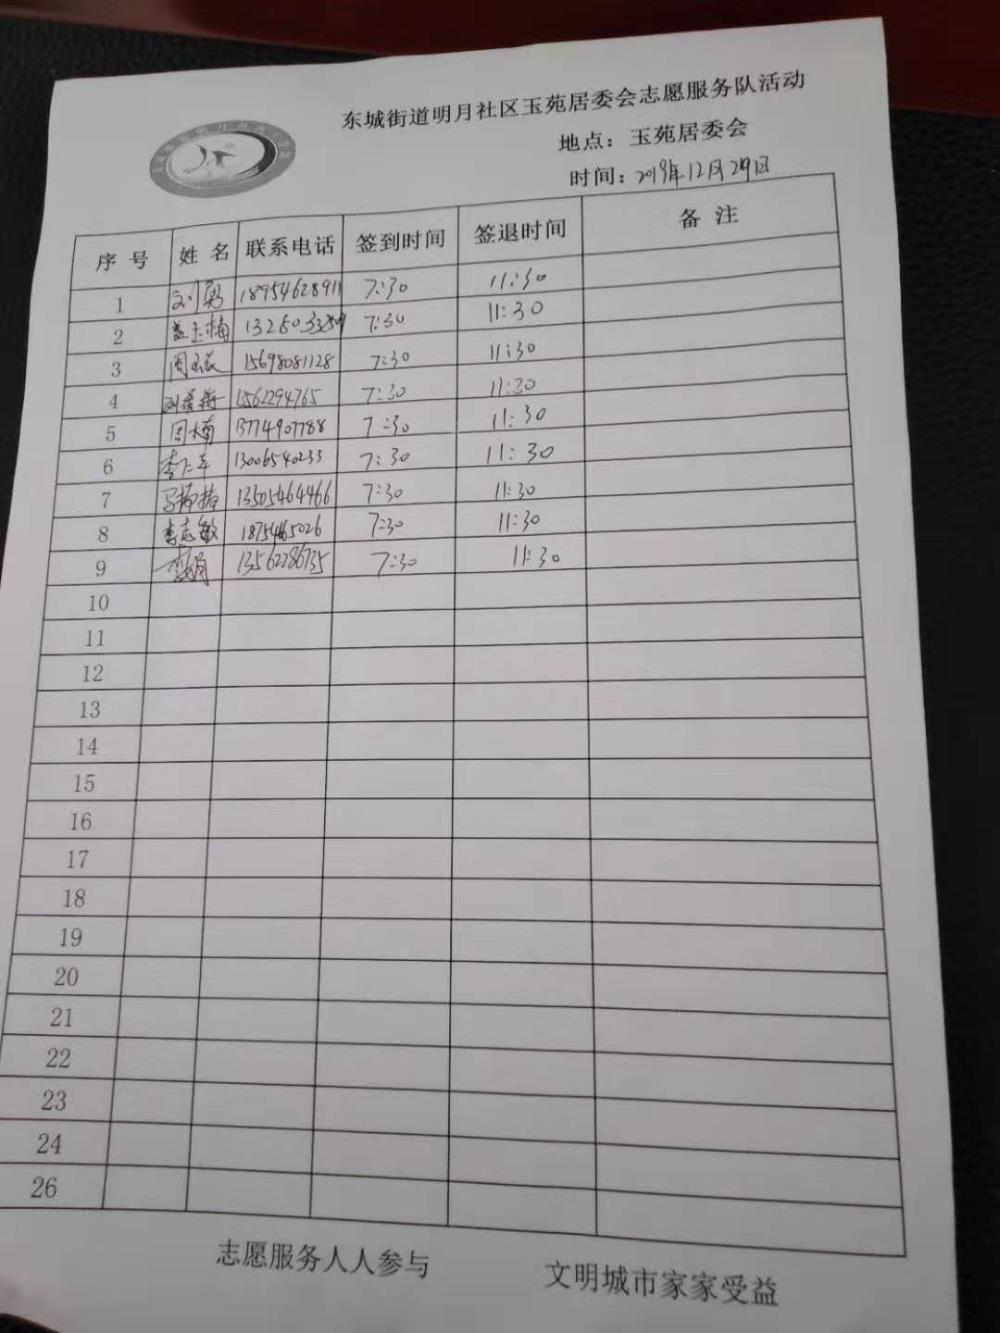 东城街道明月社区玉苑居委会志愿服务队活动
地点：玉苑居委会
时间：2019年12月29日
序号 姓名 联系电话 签到时间 签退时间 备注
1 刘勇 18954628911 7:30 11:30
2 盖玉梅 7:30 11:30
3 15698081128 7:30 11:30
4 1562294765 7:30 11:30
5 周楠 13774907788 7:30 11:30
6 13006540233 7:30 11:30
7 13505464466 7:30 11:30
8 李志敏 1875465026 7:30 11:30
9 13562286735 7:30 11:30
10
11
12
13
14
15
16
17
18
19
20
21
22
23
24
26
志愿服务人人参与 文明城市家家受益